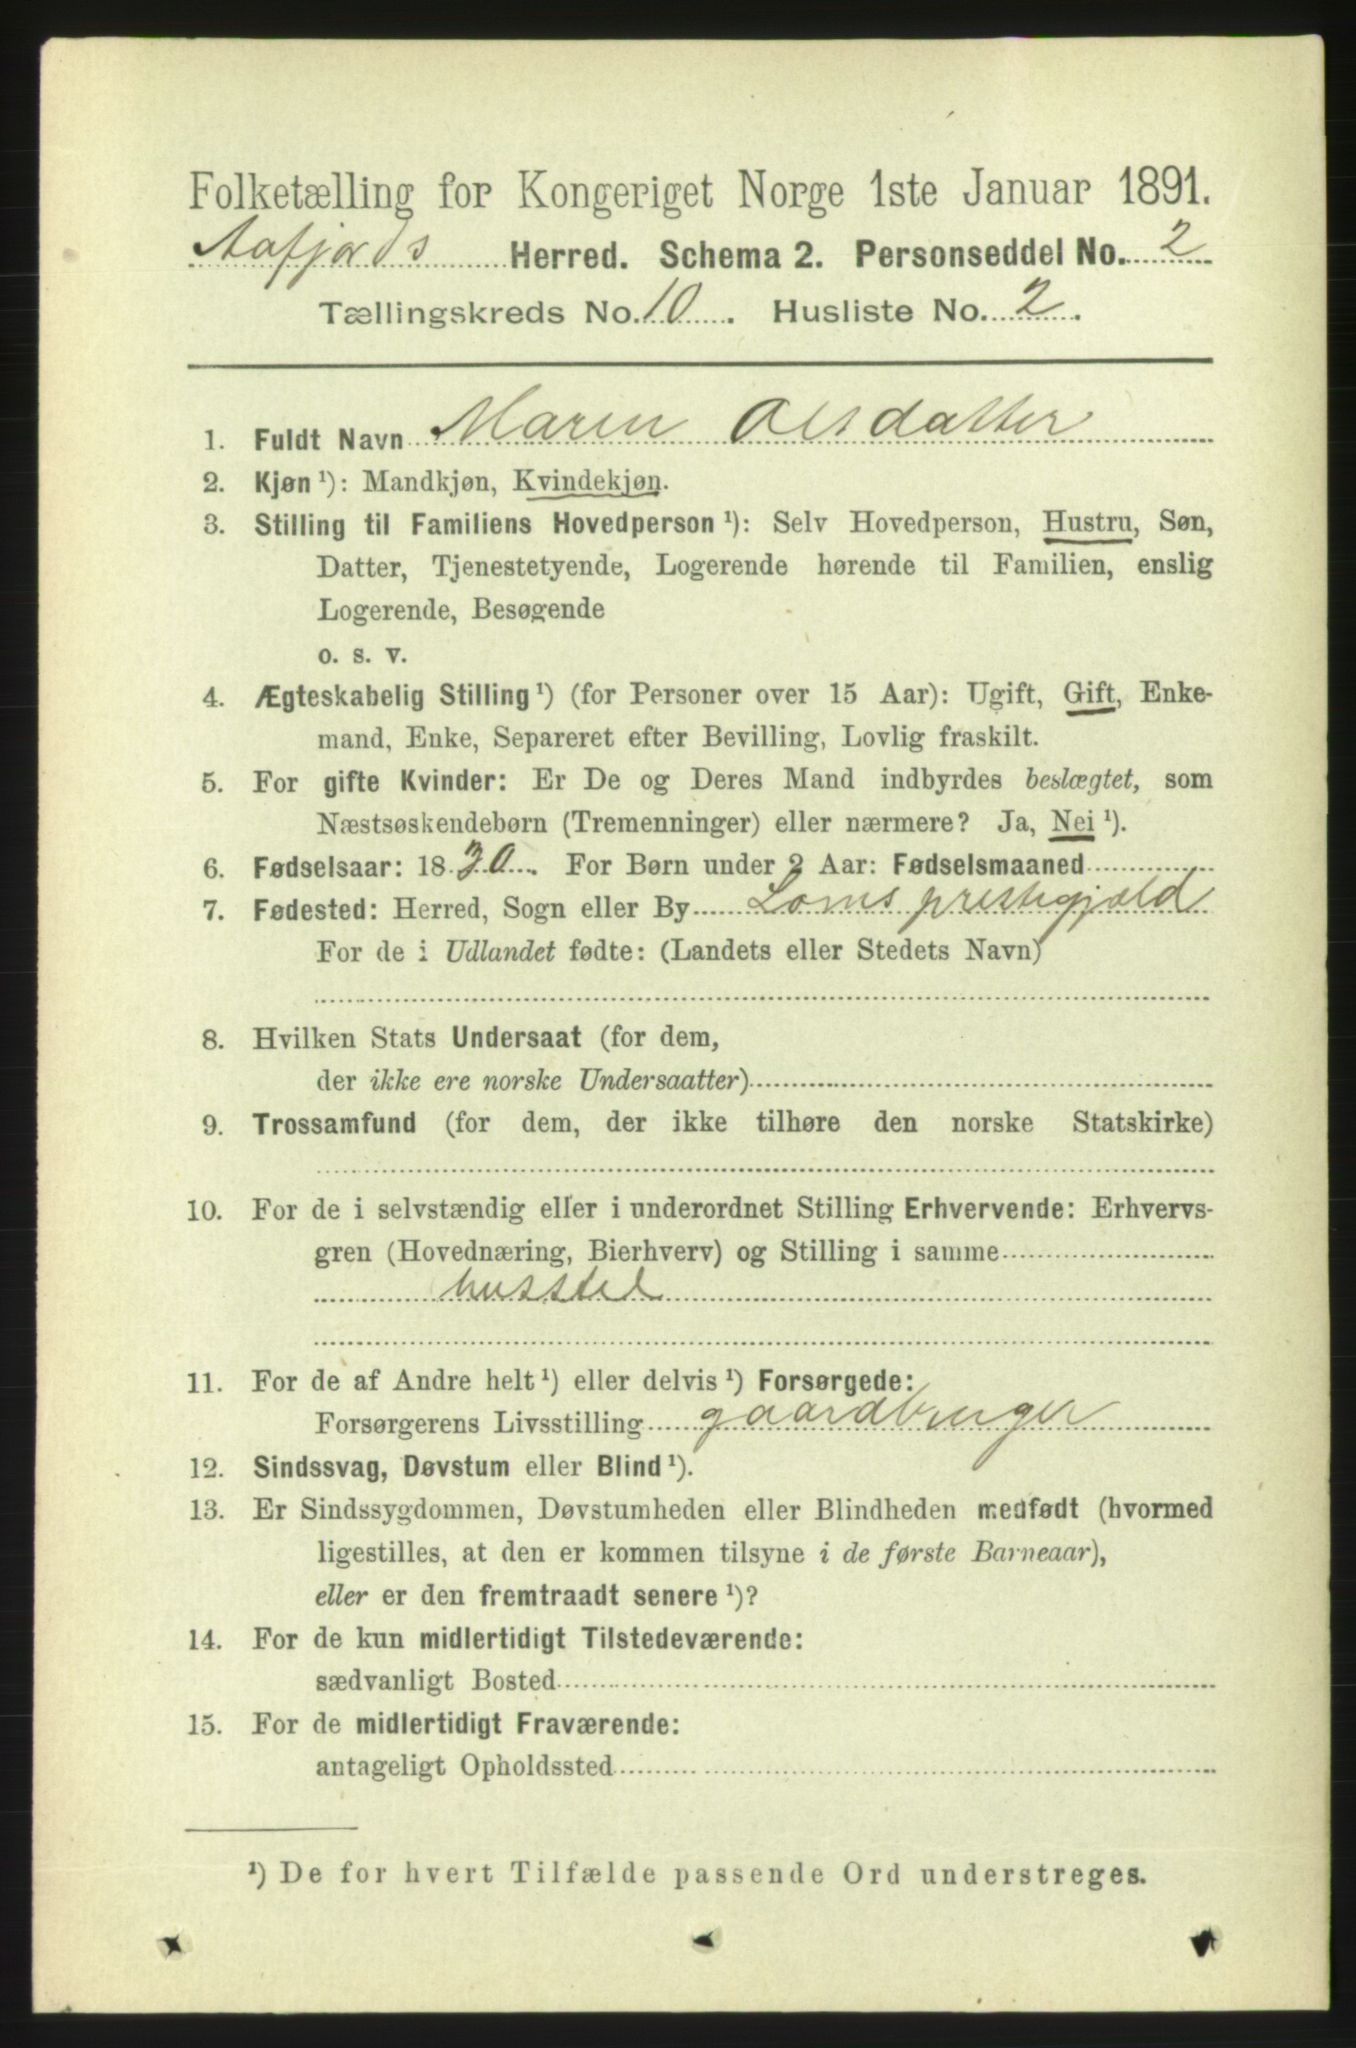 Folketælling for Kongeriget Norge 1ste Januar 1891.
Aafjords Herred. Schema 2. Personseddel No. 2
Tællingskreds No. 10. Husliste No. 2.
1. Fuldt Navn Maren Olsdatter
2. Kjøn ¹): Mandkjøn, Kvindekjøn.
3. Stilling til Familiens Hovedperson ¹): Selv Hovedperson, Hustru, Søn,
Datter, Tjenestetyende, Logerende hørende til Familien, enslig
Logerende, Besøgende
o. s. v.
4. Ægteskabelig Stilling ¹) (for Personer over 15 Aar): Ugift, Gift, Enke-
mand, Enke, Separeret efter Bevilling, Lovlig fraskilt.
5. For gifte Kvinder: Er De og Deres Mand indbyrdes beslægtet, som
Næstsøskendebørn (Tremenninger) eller nærmere? Ja, Nei ¹).
6. Fødselsaar: 1830. For Børn under 2 Aar: Fødselsmaaned
7. Fødested: Herred, Sogn eller By Loms prestegjæld
For de i Udlandet fødte: (Landets eller Stedets Navn)
8. Hvilken Stats Undersaat (for dem,
der ikke ere norske Undersaatter)
9. Trossamfund (for dem, der ikke tilhøre den norske Statskirke)
10. For de i selvstændig eller i underordnet Stilling Erhvervende: Erhvervs-
gren (Hovednæring, Bierhverv) og Stilling i samme
husstel
11. For de af Andre helt ¹) eller delvis ¹) Forsørgede:
Forsørgerens Livsstilling gaardbruger
12. Sindssvag, Døvstum eller Blind ¹).
13. Er Sindssygdommen, Døvstumheden eller Blindheden medfødt (hvormed
ligestilles, at den er kommen tilsyne i de første Barneaar),
eller er den fremtraadt senere ¹)?
14. For de kun midlertidigt Tilstedeværende:
sædvanligt Bosted
15. For de midlertidigt Fraværende:
antageligt Opholdssted
¹) De for hvert Tilfælde passende Ord understreges.